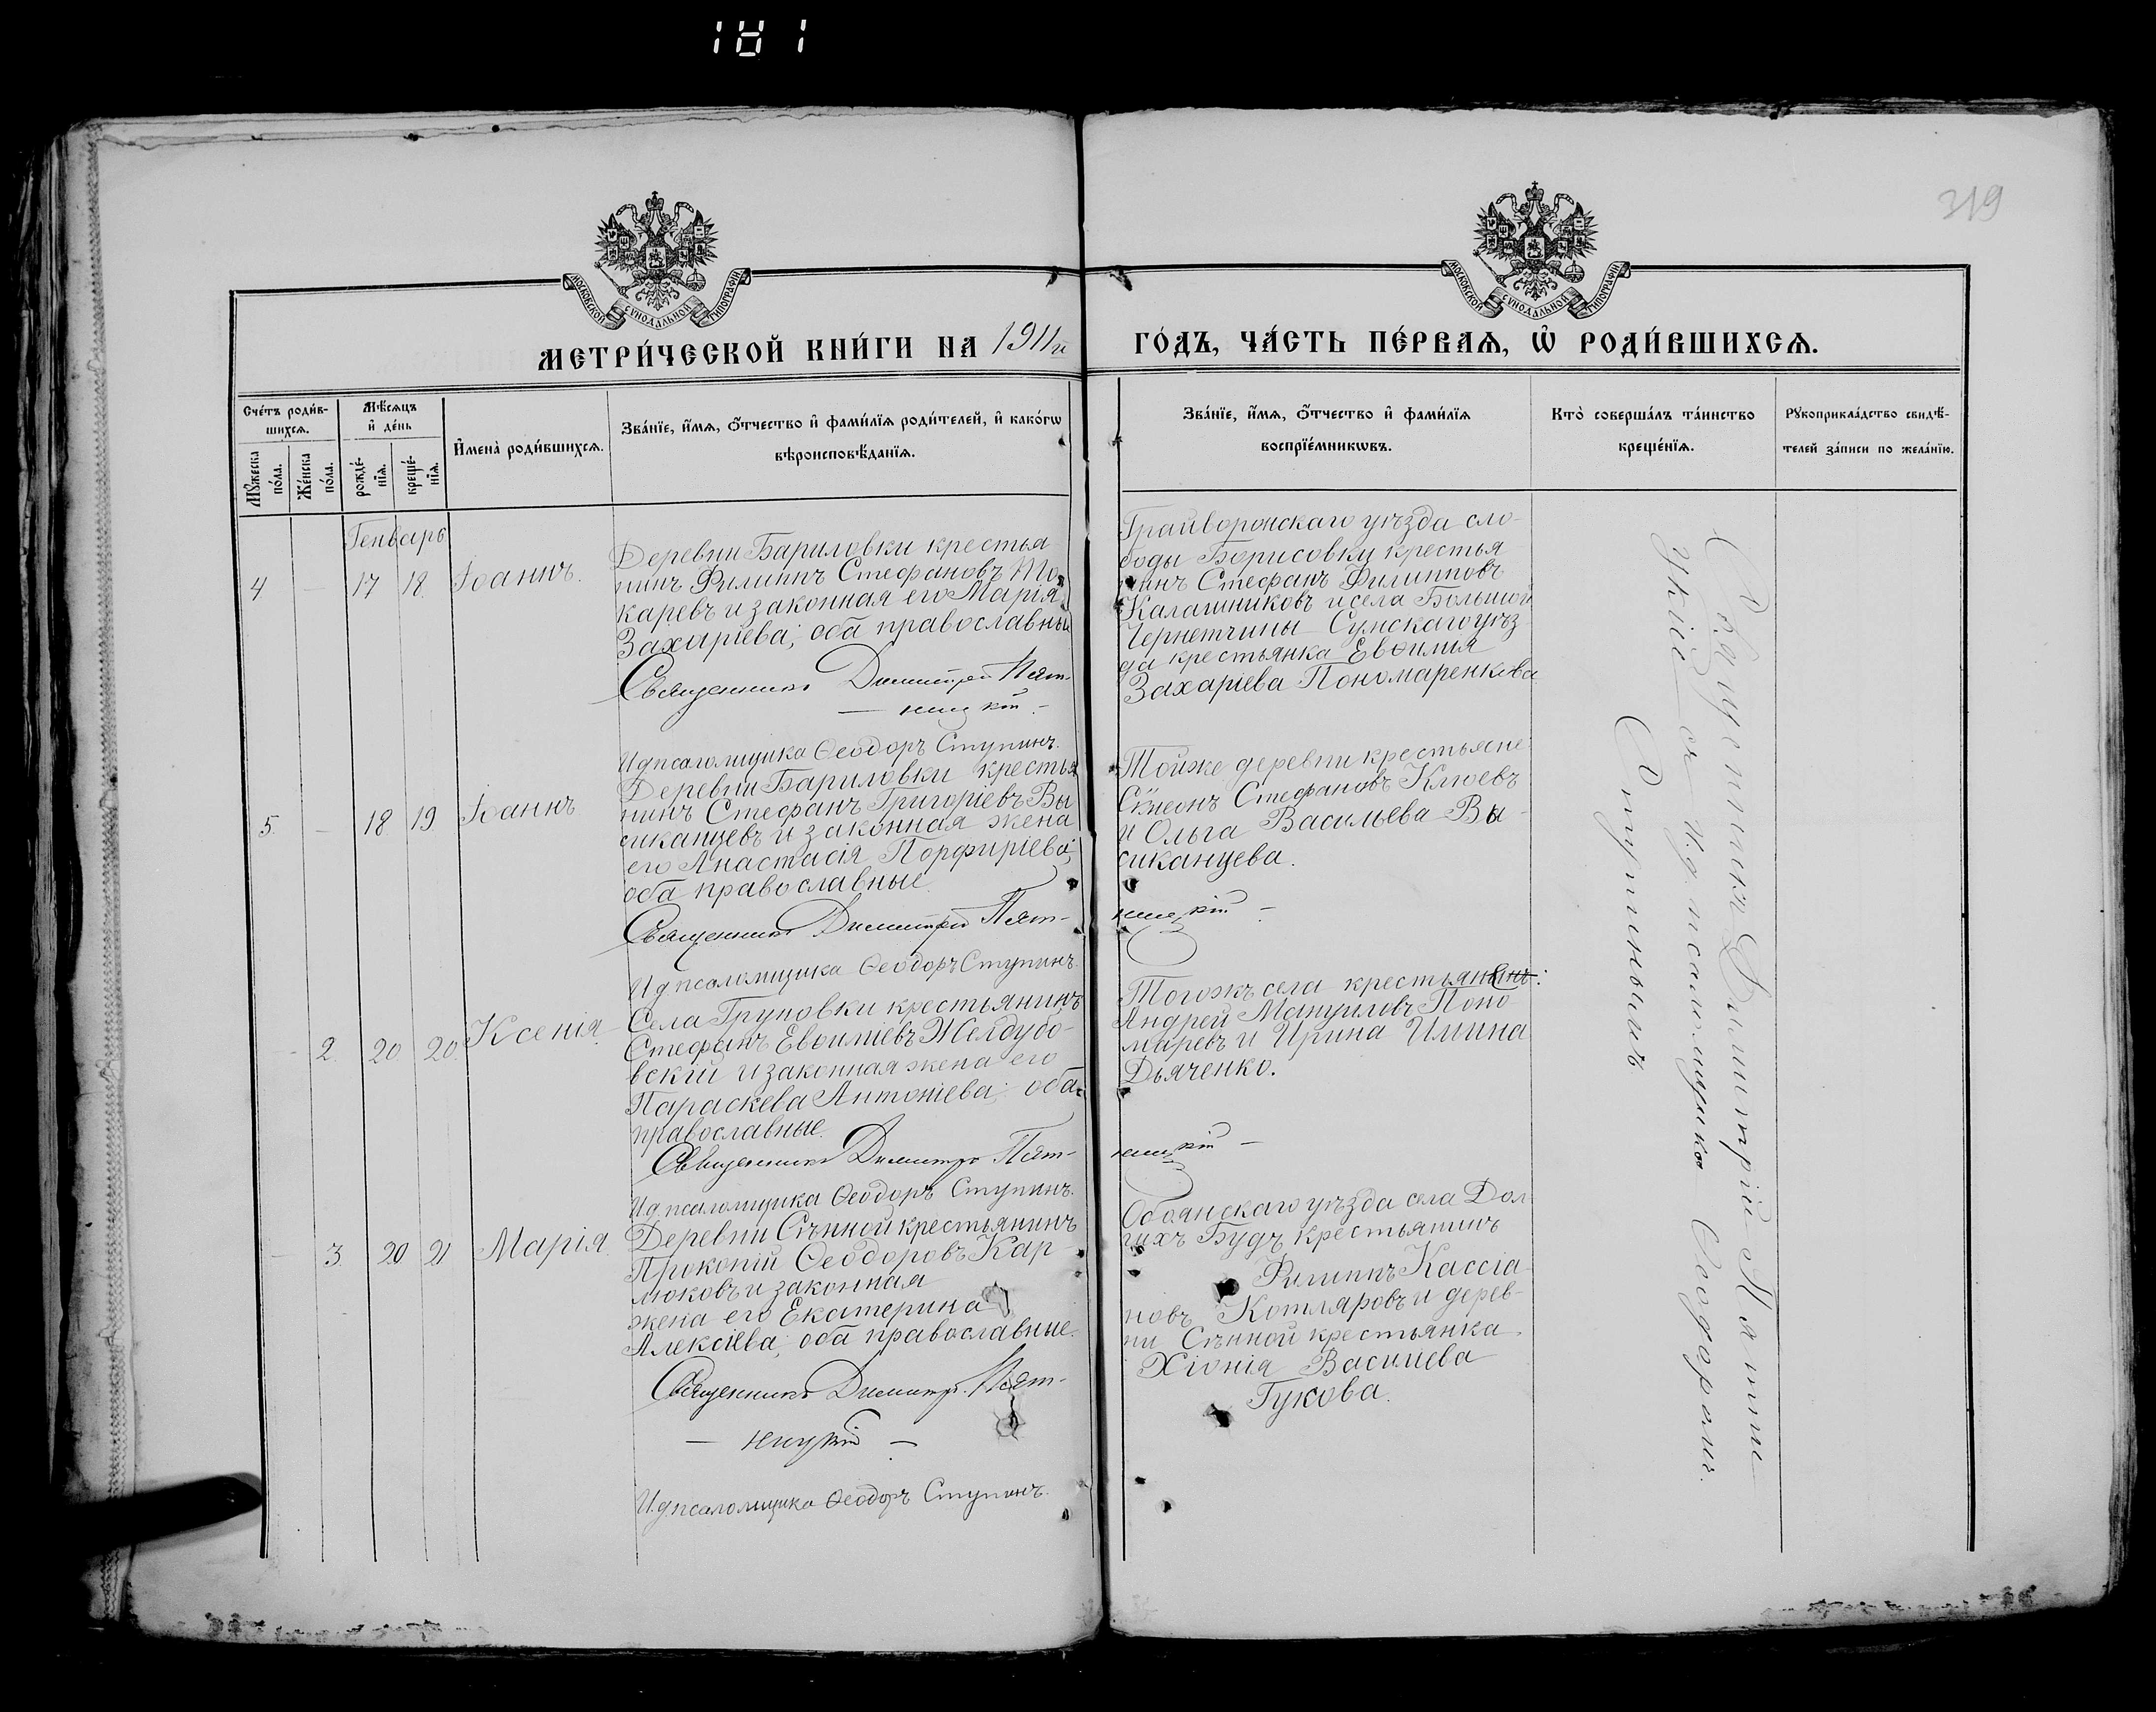 181
319
МОСКОВСКОЙ СѴНОДАЛЬНОЙ ТИПОГРАФІИ
МОСКОВСКОЙ СѴНОДАЛЬНОЙ ТИПОГРАФІИ
МЕТРИ́ЧЕСКОЙ КНИ́ГИ НА 1911й ГО́ДЪ, ЧА́СТЬ ПЕ́РВАѦ, Ѡ҆ РОДИ́ВШИХСѦ.
Сче́тъ роди́в-
шихсѧ.
Мꙋ́жеска
по́ла.
Же́нска
по́ла.
Мѣ́сѧцъ
и҆ де́нь
рожде́-
нїѧ.
креще́-
нїѧ.
И҆мена̀ роди́вшихсѧ.
Зва́нїе, и҆́мѧ, ѻ҆́тчество и҆ фами́лїѧ роди́телей, и҆ како́гѡ
вѣроисповѣ́данїѧ.
Зва́нїе, и҆́мѧ, ѻ҆́тчество и҆ фами́лїѧ
воспрїе́мникѡвъ.
Кто̀ соверша́лъ та́инство
креще́нїѧ.
Рꙋкоприкла́дство свидѣ́-
телей за́писи по жела́нїю.
Генварь
4 — 17 18. Іоаннъ.
Деревни Бариловки крестья
нинъ Филиппъ Стефановъ То-
каревъ и законная его Марія
Захаріева; оба православные
Священникъ Димитрій Пят-
— ницкій —
И.д. псаломщика Ѳеодоръ Ступинъ.
Грайворонскаго уѣзда сло-
боды Борисовки крестья
нинъ Стефанъ Филипповъ
Калашниковъ и села Большой
Чернетчины Сумскаго уѣз-
да крестьянка Евѳимія
Захаріева Пономаренкова
5. — 18 19 Іоаннъ
Деревни Бариловки крестья
нинъ Стефанъ Григоріевъ Вы
сиканцевъ и законная жена
его Анастасія Порфиріева;
оба православные.
Священникъ Димитрій Пят- ницкій —
И.д. псаломщика Ѳеодоръ Ступинъ.
Тойже деревни крестьяне
Сѵмеонъ Стефановъ Клюевъ
и Ольга Васильева Вы-
сиканцева.
- 2. 20 20. Ксенія
Села Груновки крестьянинъ
Стефанъ Евѳиміевъ Желдубо-
вскій и законная жена его
Параскева Антоніева; оба
православные.
Священникъ Димитрій Пят- ницкій —
И.д. псаломщика Ѳеодоръ Ступинъ.
Тогожъ села крестьянинъ:
Андрей Мануиловъ Поно
маревъ и Ирина Ильина
Дьяченко.
— 3. 20 21 Марія.
Деревни Сѣнной крестьянинъ
Прокопій Ѳеодоровъ Кар
люковъ и законная
жена его Екатерина
Алексіева; оба православные.
Священникъ Димитрій Пят-
— ницкій —
И.д. псаломщика Ѳеодоръ Ступинъ.
Обоянскаго уѣзда села Дол
гихъ Будъ крестьянинъ
Филиппъ Кассіа
новъ Котляровъ и дерев-
ни Сѣнной крестьянка
Хіонія Василіева
Гукова.
Священникъ Димитрій Пятни-
цкій съ и.д. псаломщика Ѳеодоромъ
Ступинымъ